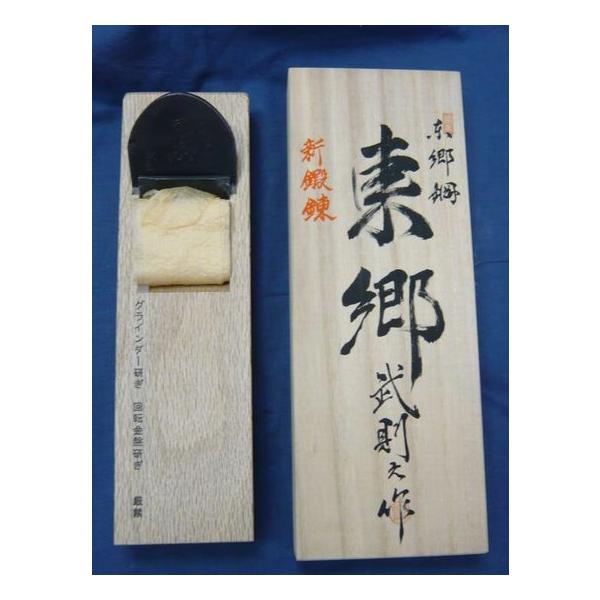 東郷鋼
東郷
武則之作
新鍛錬
グラインダー研ぎ 回転金盤研ぎ 厳禁